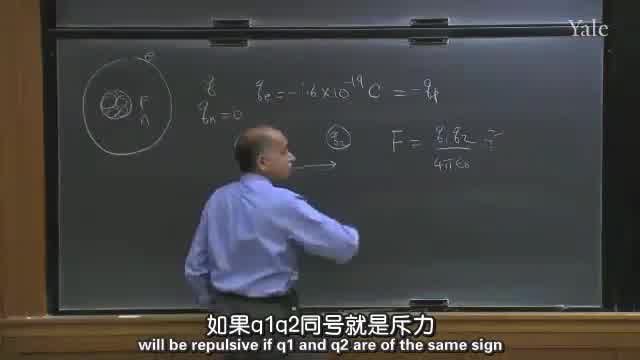 Yale
e
q qe = -1.6 × 10^-19 C = -qp
qn = 0
q2
F = q1 q2 / 4πε0
如果q1q2同号就是斥力
will be repulsive if q1 and q2 are of the same sign